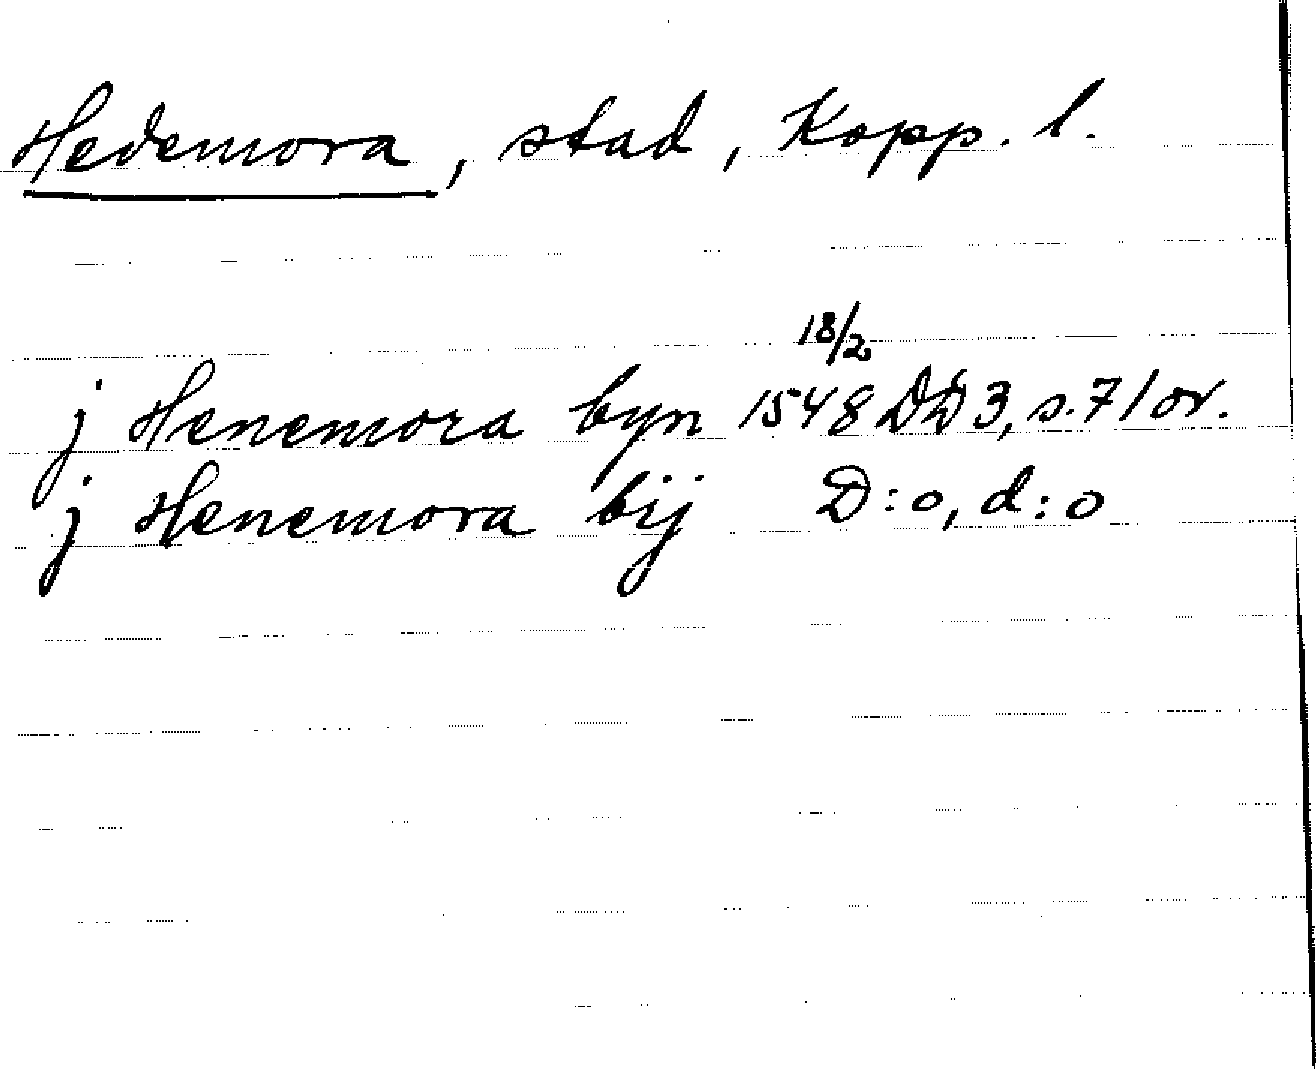 Hedemora, stad, Kopp. l.
18/2
j Henemora byn 1548 DD 3, s. 71 or.
j Henemora bij D:o, d:o